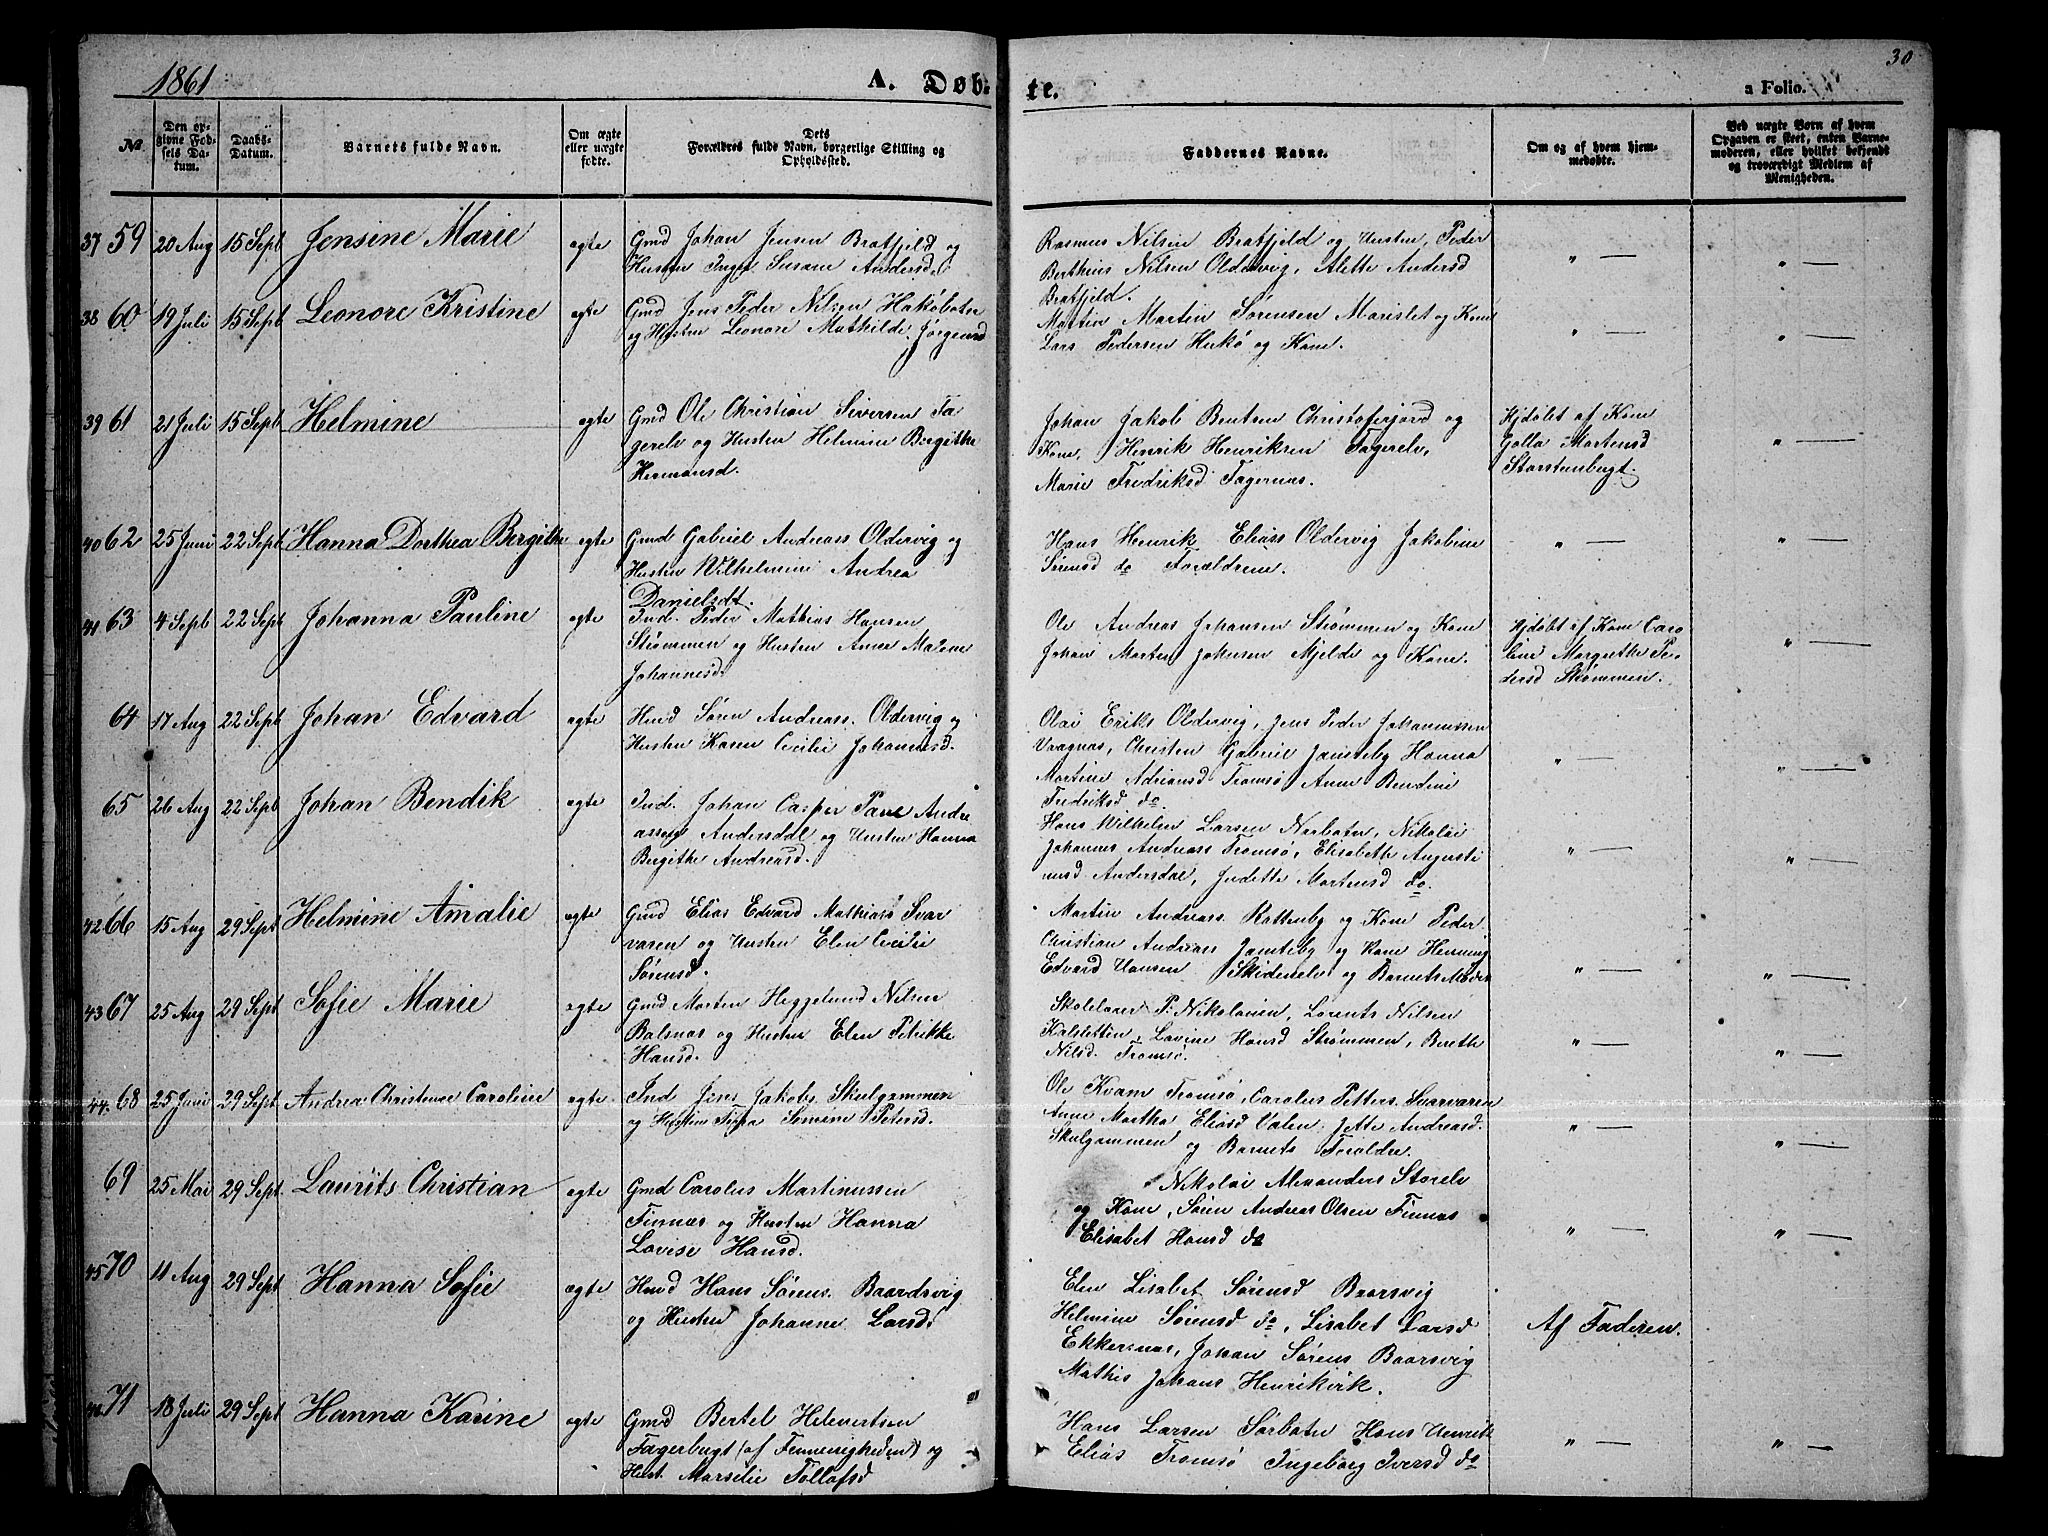 1861
A. Døb-
te.
a Folio.
30
№
Den op-
givne Fød-
sels Da-
tum.
Daabs-
Datum.
Barnets fulde Navn.
Om ægte
eller uægte
fødte.
Dets
Forældres fulde Navn, borgerlige Stilling og
Opholdssted.
Faddernes Navne.
Om og af hvem hjem-
medøbte.
Ved uægte Børn af hvem
Opgaven er skeet, enten Barne-
moderen, eller hvilket bekjendt
og troværdigt Medlem af
Menigheden.
37 59 20 Aug 15 Sept Jensine Marie ægte
Gmd Johan Jensen Bratfjeld og
Hustru Inger Susan Andersd.
Rasmus Nilsen Bratfjeld og Hustru, Peder
Berthius Nilsen Oldervig, Alette Andersd
Bratfjeld.
" — " —
38 60 19 Juli 15 Sept Leonore Kristine ægte
Gmd Jens Peder Nilsen Hakøbotn
og Hustru Leonore Mathilde Jørgensd
Martin Sørensen Marislet og Kone
Lars Pedersen Hakø og Kone.
" — " —
39 61 21 Juli 15 Sept Helmine ægte
Gmd Ole Christian Siversen Fa
gerelv og Hustru Helmine Bergithe
Hermansd.
Johan Jakob Bentsen Christofirjord og
Kone, Henrik Henriksen Fagerelv,
Marie Fredriksd Fagernæs.
Hjdøbt af Kone
Golla Martensd
Storstenbugt.
" —
40 62 25 Juni 22 Sept Hanna Dorthea Bergithe ægte
Gmd Gabriel Andreass Oldervig og
Hustru Wilhelmine Andrea
Danielsdt.
Hans Henrik Eliass Oldervig Jakobine
Sørensd do Forældrene.
" — " —
41 63 4 Septb 22 Sept Johanna Pauline ægte
Ind. Peder Mathias Hansen
Strømmen og Hustru Anne Malene
Johannesd.
Ole Andreas Johansen Strømmen og Kone
Johan Morten Johnsen Mjelde og Kone.
Hjdøbt af Kone Caro
line Margrethe Pe-
dersd Strømmen.
" —
64 17 Aug 22 Sept Johan Edvard ægte
Husd Søren Andreass. Oldervig og
Hustru Karen Cecilie Johannesd.
Olai Eriks Oldervig, Jens Peder Johannessen
Vaagnæs, Christen Gabriel Jamteby Hanna
Martine Adriansd Tromsø Anne Bendine
Fredriksd do.
" — " —
65 26 Aug 22 Sept Johan Bendik ægte
Ind. Johan Casper Pave Andre
assen Andersdal og Hustru Hanna
Birgithe Andreasd.
Hans Wilhelm Larsen Norbotn, Nikolai
Johannes Andreass Tromsø, Elisabeth Augusti
nusd Andersdal, Judette Martensd do.
" — " —
42 66 15 Aug 29 Sept Helmine Amalie ægte
Gmd Elias Edvard Mathiass Svar
varen og Hustru Elen Cecilie
Sørensd.
Martin Andreass. Kattenby og Kone Peder
Christian Andreass Jamteby og Kone Henning
Edvard Hansen Skidenelv og Barnets Moder
" — " —
43 67 25 Aug 29 Sept Sofie Marie ægte
Gmd Morten Heggelund Nilsen
Balsnæs og Hustru Elen Petrikke
Hansd.
Skolelærer P. Nikolaisen, Lorents Nilsen
Kalsletten, Lovine Hansd Strømmen, Bereth
Nilsd. Tromsø.
" — " —
44 68 25 Juni 29 Sept Andrea Christense Caroline ægte
Ind Jens Jakobs. Skulgammen
og Hustru Simine Petersd.
Ole Kvam Tromsø, Carolus Petters. Svarvaren
Anne Martha Eliasd Valen, Jette Andreasd.
Skulgammen og Barnets Forældre.
" — " —
69 25 Mai 29 Sept. Laurits Christian ægte
Gmd Carolus Martinussen
Finnæs og Hustru Hanna
Lovise Hansd.
Nikolai Alexanders Storelv
og Kone, Søren Andreas Olsen Finnæs
Elisabet Hansd do
" — " —
45 70 11 Aug 29 Sept Hanna Sofie ægte
Husd Hans Sørens. Baardsvig
og Hustru Johanne Larsd.
Elen Lisabet Sørensd Baarsvig
Helmine Sørensd do, Lisabet Larsd
Ekkersnæs, Johan Sørens Baarsvig
Mathis Johans Henrikvik.
Af Faderen.
46 71 18 Juli 29 Sept Hanna Karine ægte
Gmd Bertel Helmertsen
Fagerbugt (af Finmenigheden) og
Hust. Marselie Tollofsd
Hans Larsen Sørbotn Hans Henrik
Elias Tromsø Ingeborg Iversd do
" — " —